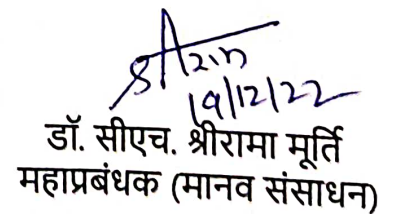 19/12/22
डॉ. सीएच. श्रीरामा मूर्ति
महाप्रबंधक (मानव संसाधन)